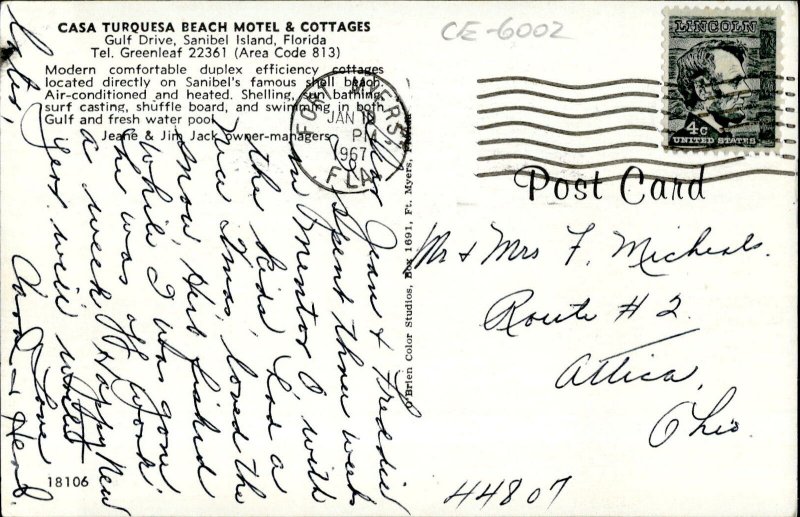 CASA TURQUESA BEACH MOTEL & COTTAGES
Gulf Drive, Sanibel Island, Florida
Tel. Greenleaf 22361 (Area Code 813)
Modern comfortable duplex efficiency cottages
located directly on Sanibel's famous shell beach.
Air-conditioned and heated. Shelling, sun bathing,
surf casting, shuffle board, and swimming in both
Gulf and fresh water pool.
Jeane & Jim Jack owner-managers
CE-6002
LINCOLN
4c
UNITED STATES
FORT MYERS,
JAN 10
PM
1967
FLA.
Post Card
O'Brien Color Studios, Box 1691, Ft. Myers, Florida
Dear Jean & Freddie
Spent three weeks
in Mentor O. with
the kids. Had a
nice Xmas, loved the
snow. Herb fished
while I was gone
he was off work
a week. Happy New
Yers. will write
later,
Love
&
Herb.
Mr & Mrs F. Micheals.
Route # 2.
Attica,
Ohio.
44807
18106